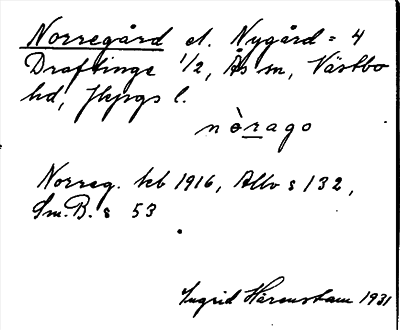 Norregård el. Nygård = 4
Draftinge 1/2, Ås sn, Västbo
hd, Jkpgs l.
nòrago
Norreg. hb 1916, Allv s 132,
Sm.B. s 53
Ingrid Härenstam 1931